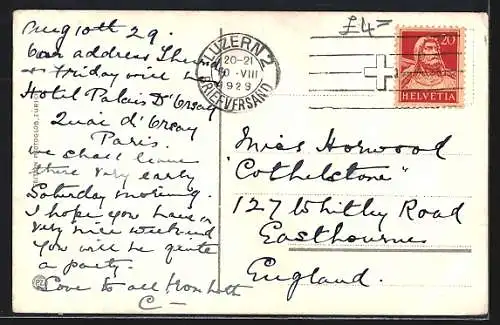 Aug 10th 29.
Our address Thurs
or Friday will be
Hotel Palais D'Orsay
Quai d'Orsay
Paris.
We shall leave
there very early
Saturday morning.
I hope you have a
very nice weekend
You will be quite
a party.
Love to all from both
C—
£4=
LUZERN 2
20-21
10-VIII
1929
BRIEFVERSAND
20
HELVETIA
Miss Horwood
"Cothelstone"
127 Whitley Road
Eastbourne
England.